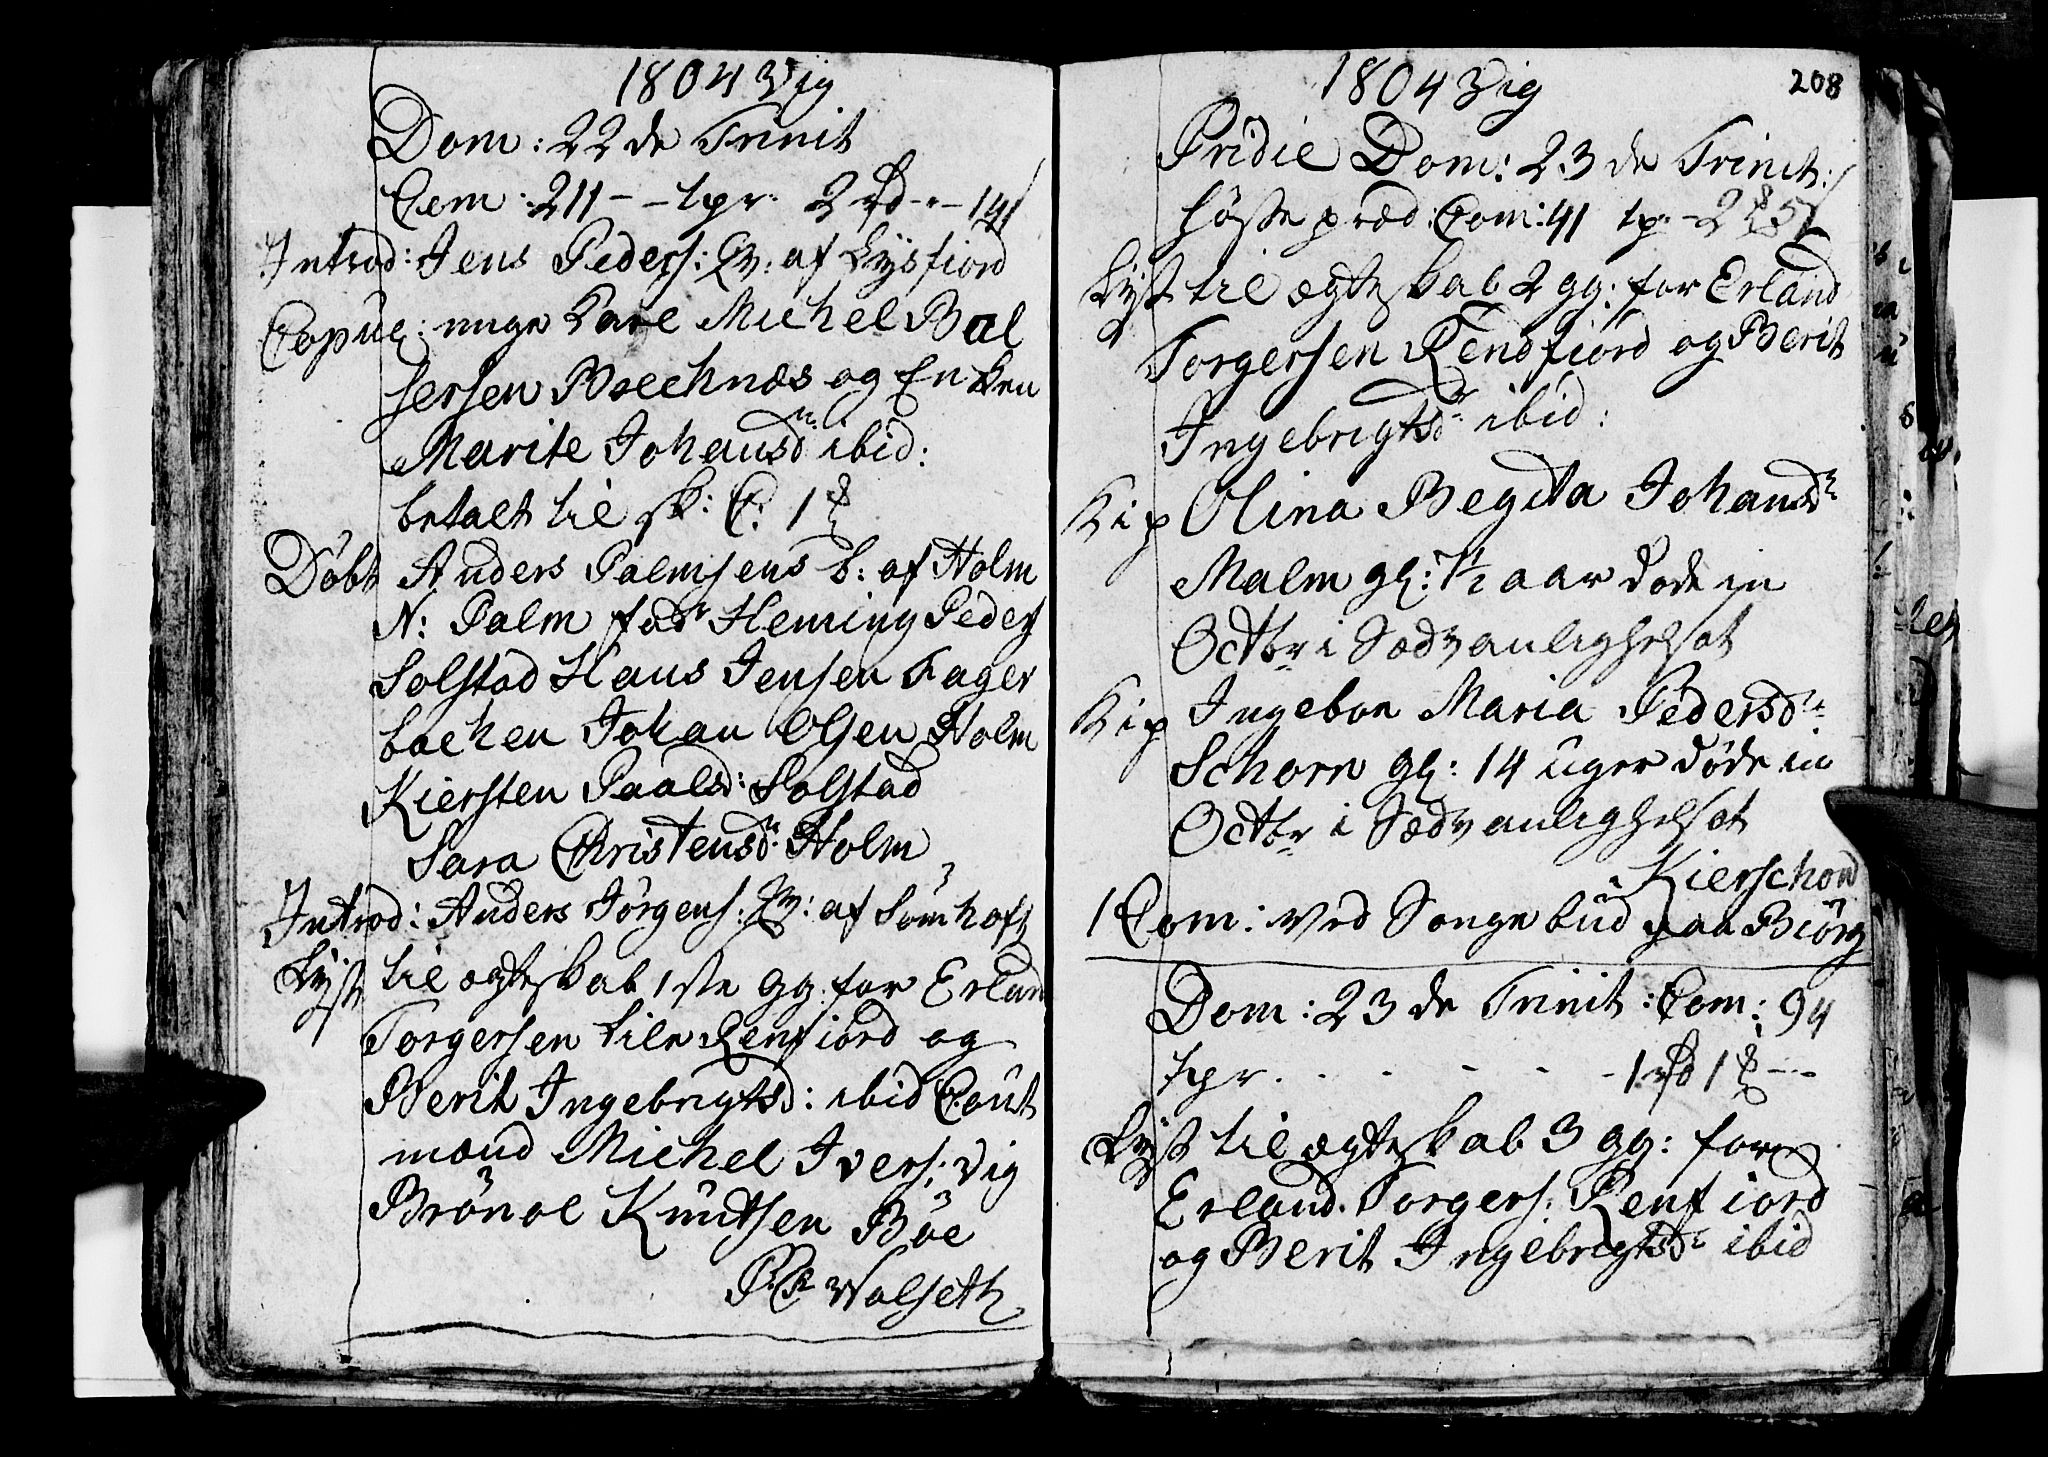 1804 Vig
Dom: 22 de Trinit
Com: 211 - - tpr. 2 rd - " - 14 s
Introd: Jens Peders: Qv: af Lysfiord
Copul: unge Karl Michel Bal
sersen Boechnæs og Enken
Marite Johansdr ibid:
betalt til sk: C: 1
Döbt Anders Palmsens b: af Holm
N: Palm fadr Heming Peders
Solstad Hans Jensen Fager
backen Johan Olsen Holm
Kiersten Paalsd: Solstad
Sara Christensdr Holm
Introd: Anders Jörgens: Qv: af Sömhoft
Lyste til ægteskab 1ste gg: for Erland
Torgersen Renfiord og
Berit Ingebrigtsd: ibid Caut
mænd Michel Ivers: Vig
Brönol Knudtsen Böe
Walseth
1804 Vig
208
Pridie Dom: 23 de Trinit:
höstepræd: Com: 41 tp - 2
Lyst til ægteskab 2 gg: for Erland
Torgersen Rendfiord og Berit
Ingebrigtsdr ibid:
Kip Olina Begita Johansdr
Malm gl: 7 1/2 aar döde in
Octbr i Sædvanlighelsot
Kip Ingebor Maria Pedersdr
Schorn gl: 14 uger döde in
Octbr i Sædvanlighelsot
Kierschow
1 Com: ved Songebud paa Biörg
Dom: 23 de Trinit: Com: 94
tpr. - - - - - 1 rd 1 - - -
Lyst til ægteskab 3 gg: for
Erland Torgers: Renfiord
og Berit Ingebrigtsdr ibid